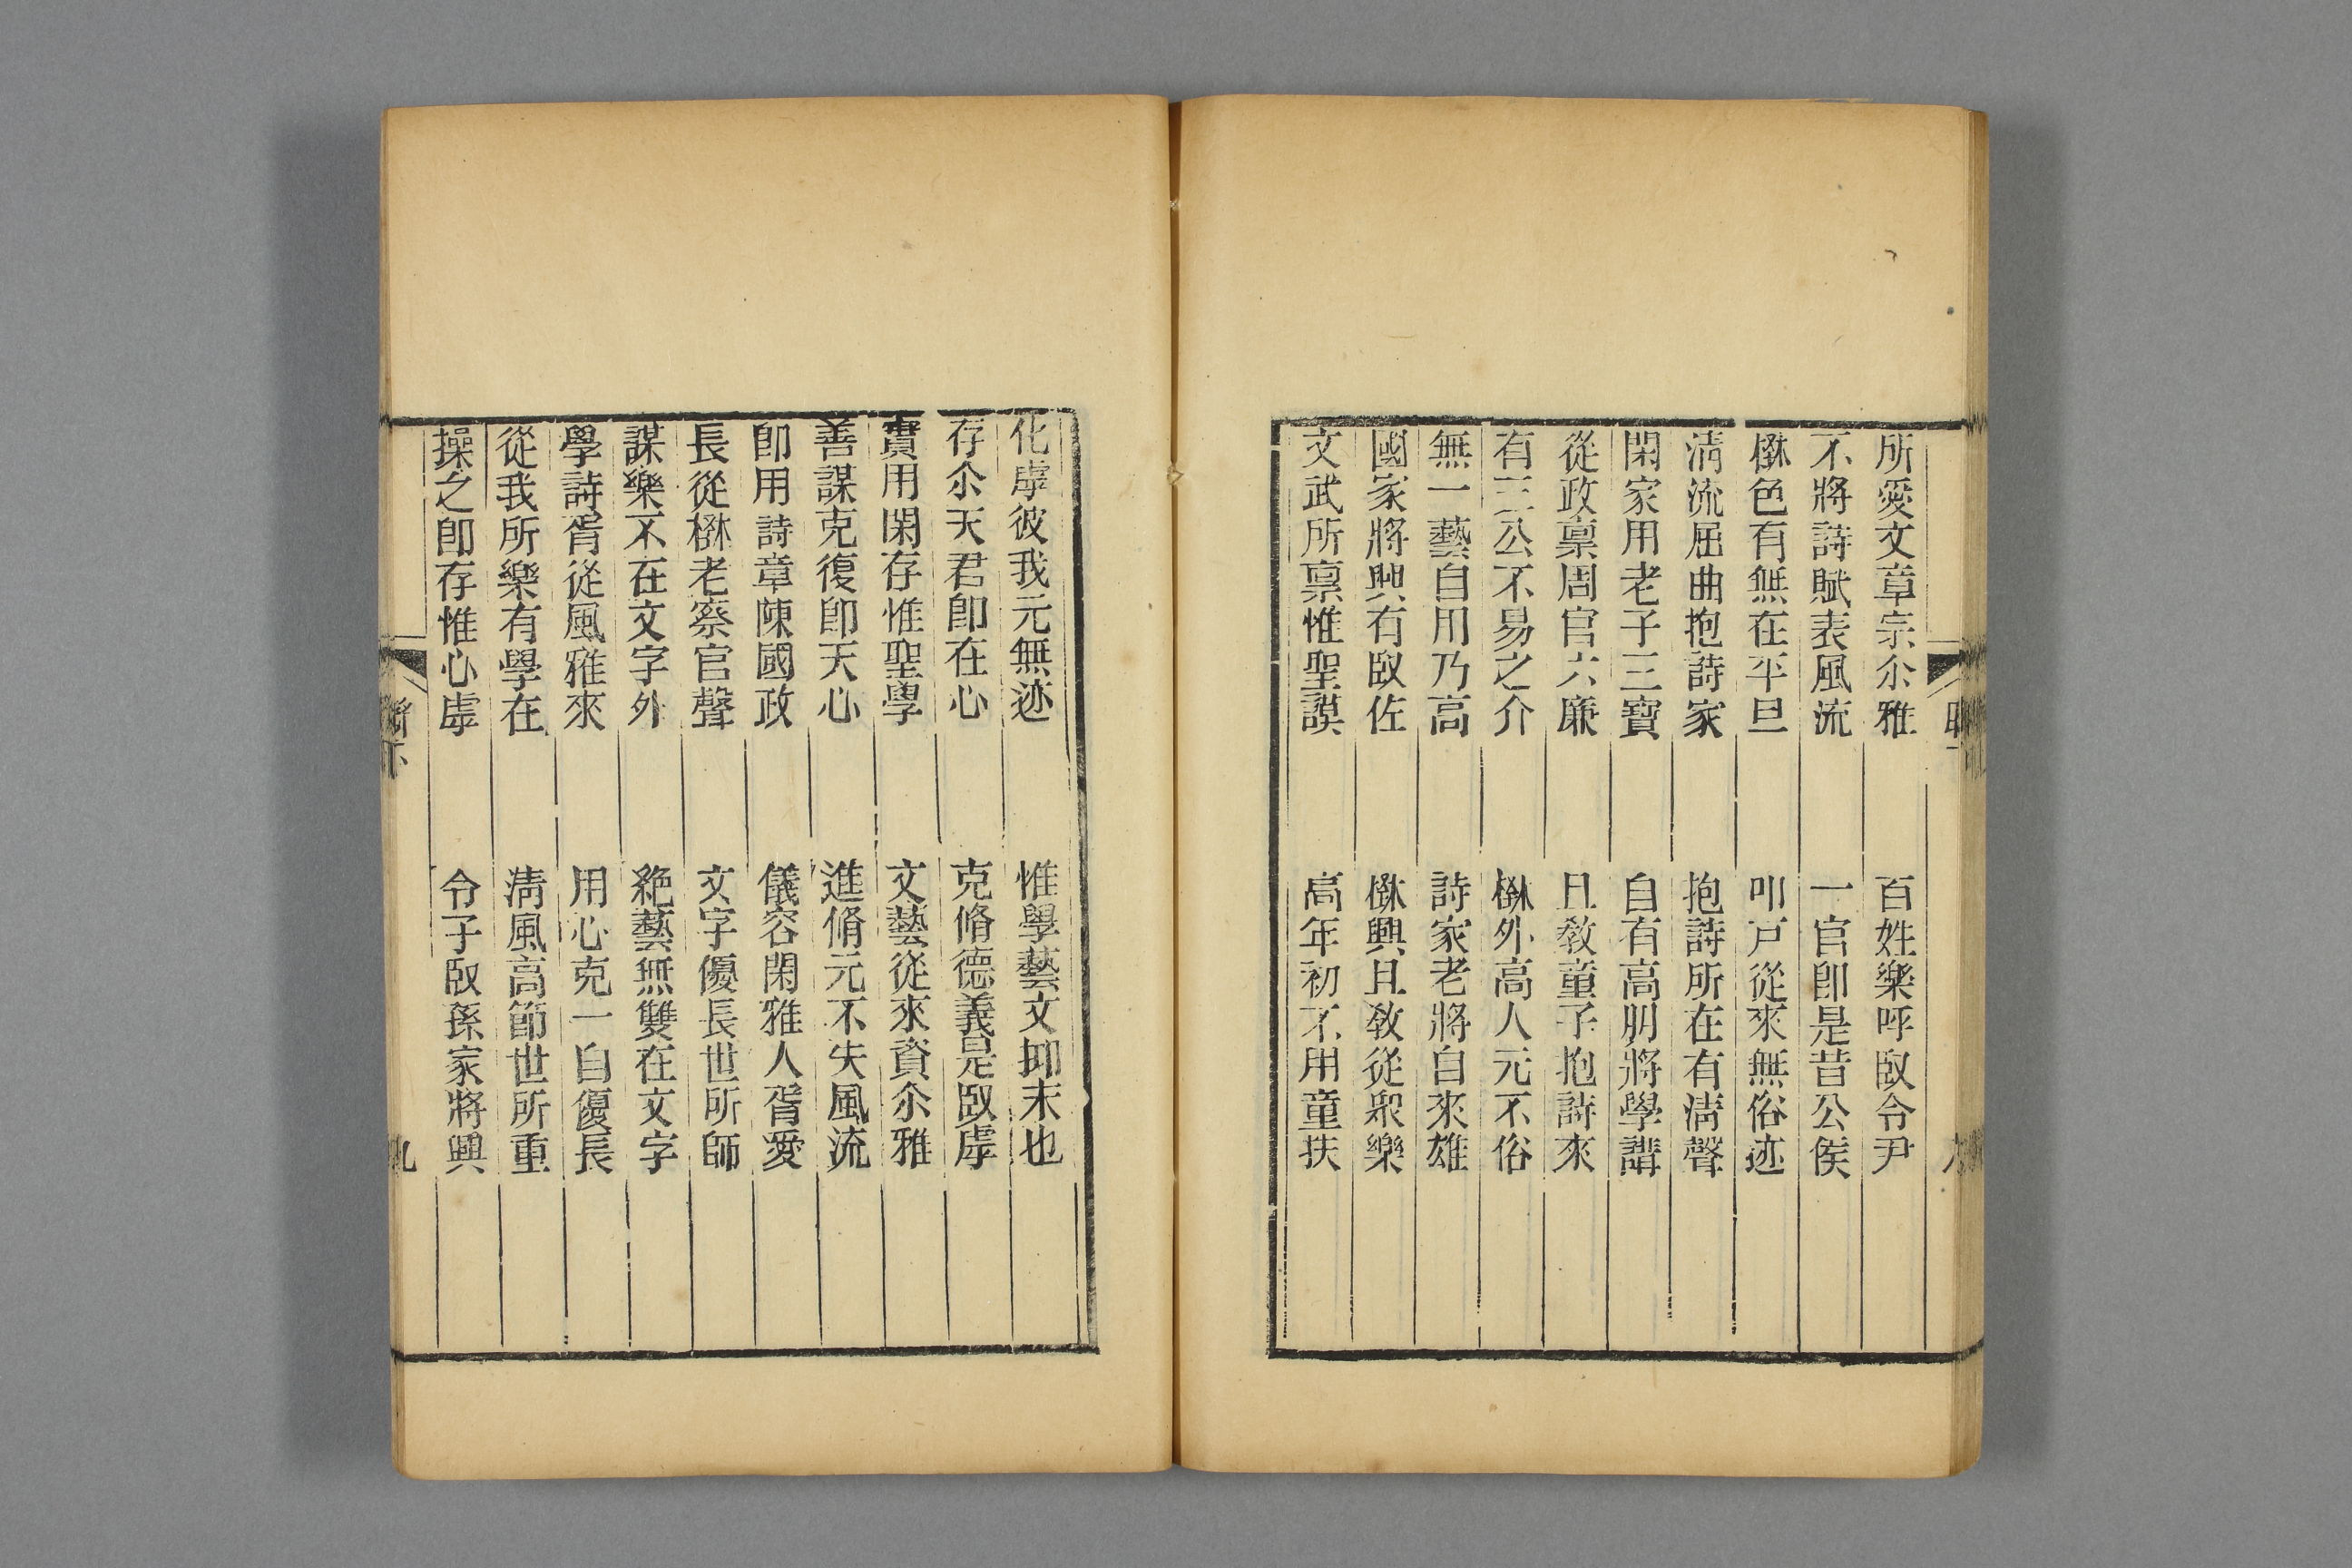 所愛文章宗尒雅　百姓樂呼臤令尹
不將詩賦表風流　一官卽是昔公侯
壄色有無在平旦　叩戶從來無俗迹
清流屈曲抱詩家　抱詩所在有清聲
閑家用老子三寶　自有高朋將學講
從政稟周官六廉　且敎童子抱詩來
有三公不易之介　壄外高人元不俗
無一藝自用乃高　詩家老將自來雄
國家將興有臤佐　壄興且敎從衆樂
文武所稟惟聖謨　高年初不用童扶
化虖彼我元無迹　惟學藝文抑末也
存尒天君卽在心　克脩德義是臤虖
實用閑存惟聖學　文藝從來資尒雅
善謀克復卽天心　進脩元不失風流
卽用詩章陳國政　儀容閑雅人胥愛
長從壄老察官聲　文字優長世所師
謀樂不在文字外　絕藝無雙在文字
學詩胥從風雅來　用心克一自優長
從我所樂有學在　清風高節世所重
操之卽存惟心虖　令子臤孫家將興
九